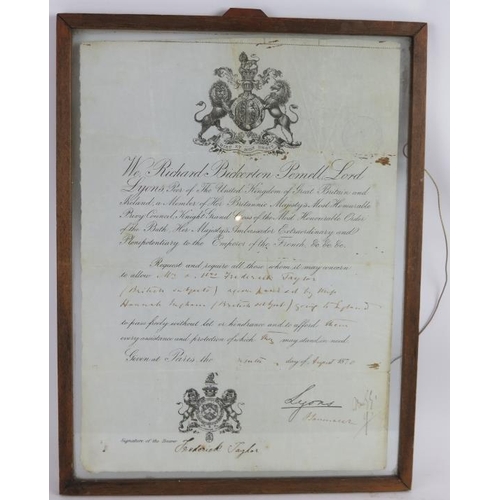 We, Richard Bickerton Pemell Lord
Lyons, Peer of The United Kingdom of Great Britain and
Ireland, a Member of Her Britannic Majesty's Most Honorable
Privy Council, Knight Grand Cross of the Most Honourable Order
of the Bath, Her Majesty's Ambassador Extraordinary and
Plenipotentiary to the Emperor of the French &c &c &c.
Request and require all those whom it may concern
to allow Mr & Mrs Frederick Taylor
(British subjects) accompanied by Miss
Hannah (British subject) going to England
to pass freely without let or hindrance and to afford them
every assistance and protection of which they may stand in need.
Given at Paris the day of August 1870
Lyons
Signature of the Bearer
Frederick Taylor